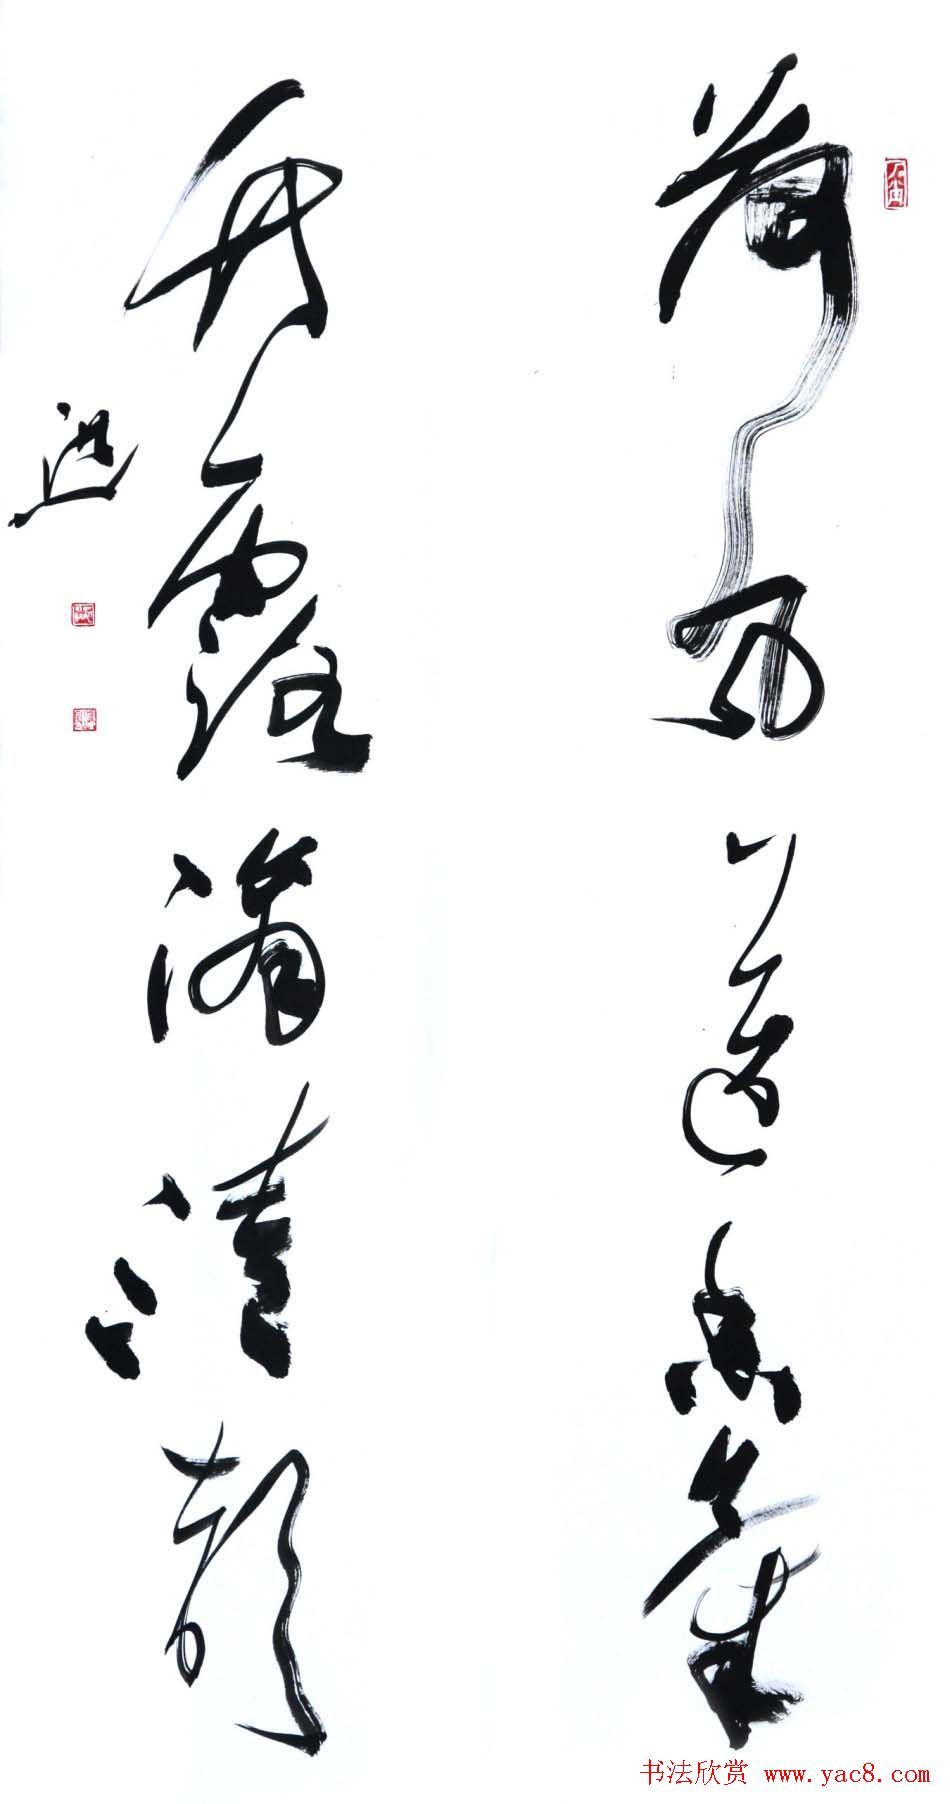 荷风送香气
竹露滴清响
书法欣赏 www.yac8.com